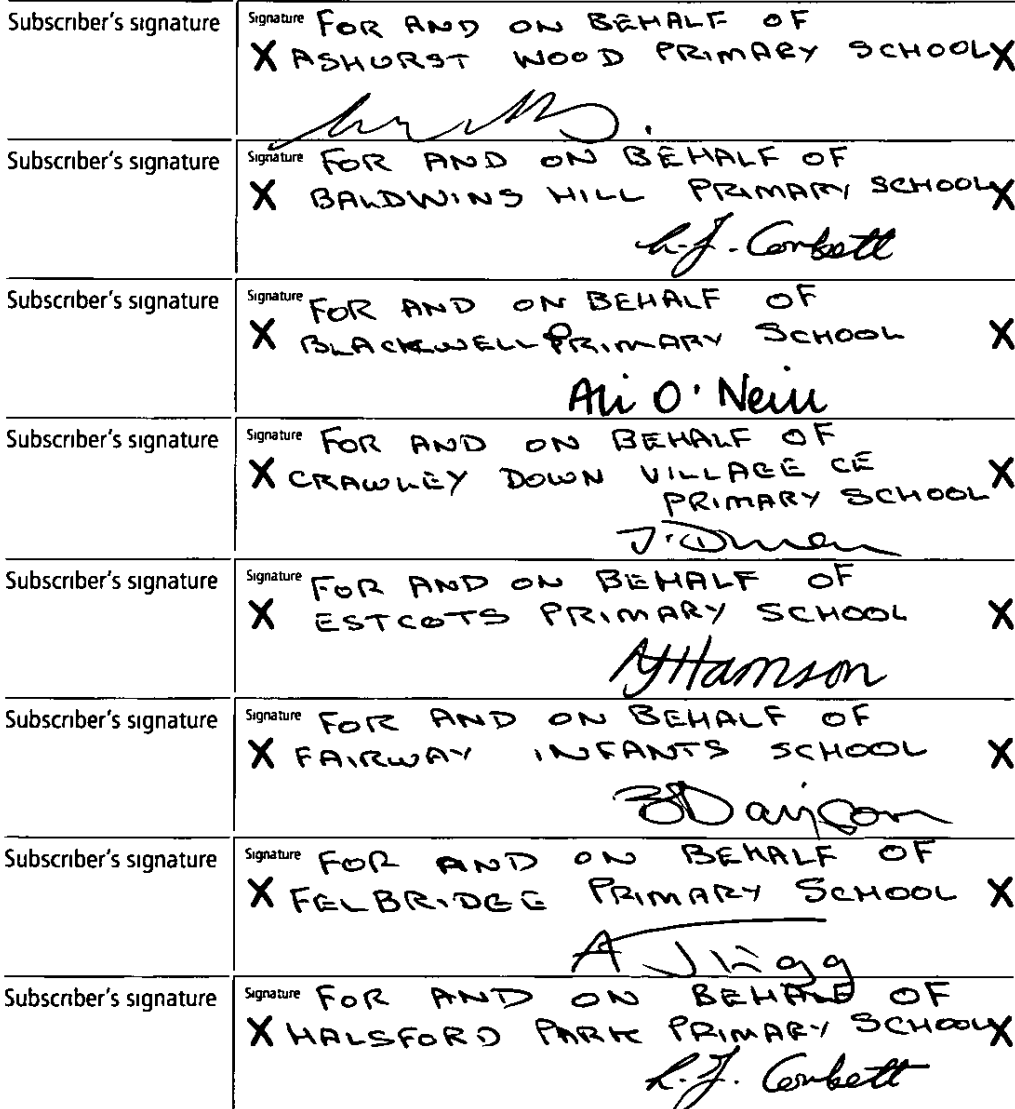 Subscriber's signature
Signature FOR AND ON BEHALF OF
X ASHURST WOOD PRIMARY SCHOOL X
Subscriber's signature
Signature FOR AND ON BEHALF OF
X BALDWINS HILL PRIMARY SCHOOL X
L.J. Corbett
Subscriber's signature
Signature FOR AND ON BEHALF OF
X BLACKWELL PRIMARY SCHOOL X
Ali O'Neill
Subscriber's signature
Signature FOR AND ON BEHALF OF
X CRAWLEY DOWN VILLAGE CE X
PRIMARY SCHOOL
Subscriber's signature
Signature FOR AND ON BEHALF OF
X ESTCOTS PRIMARY SCHOOL X
Subscriber's signature
Signature FOR AND ON BEHALF OF
X FAIRWAY INFANTS SCHOOL X
Subscriber's signature
Signature FOR AND ON BEHALF OF
X FELBRIDGE PRIMARY SCHOOL X
Subscriber's signature
Signature FOR AND ON BEHALF OF
X HALSFORD PARK PRIMARY SCHOOL X
L.J. Corbett